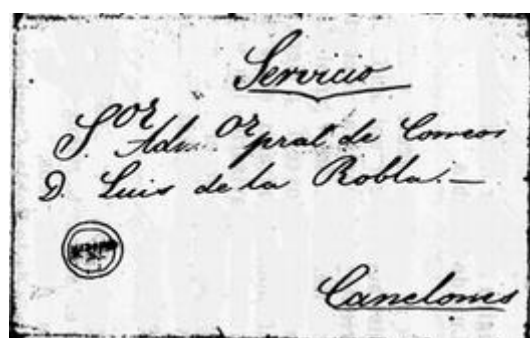 Servicio
S.or Adm.or pral de Correos
D. Luis de la Robla. —
Canelones